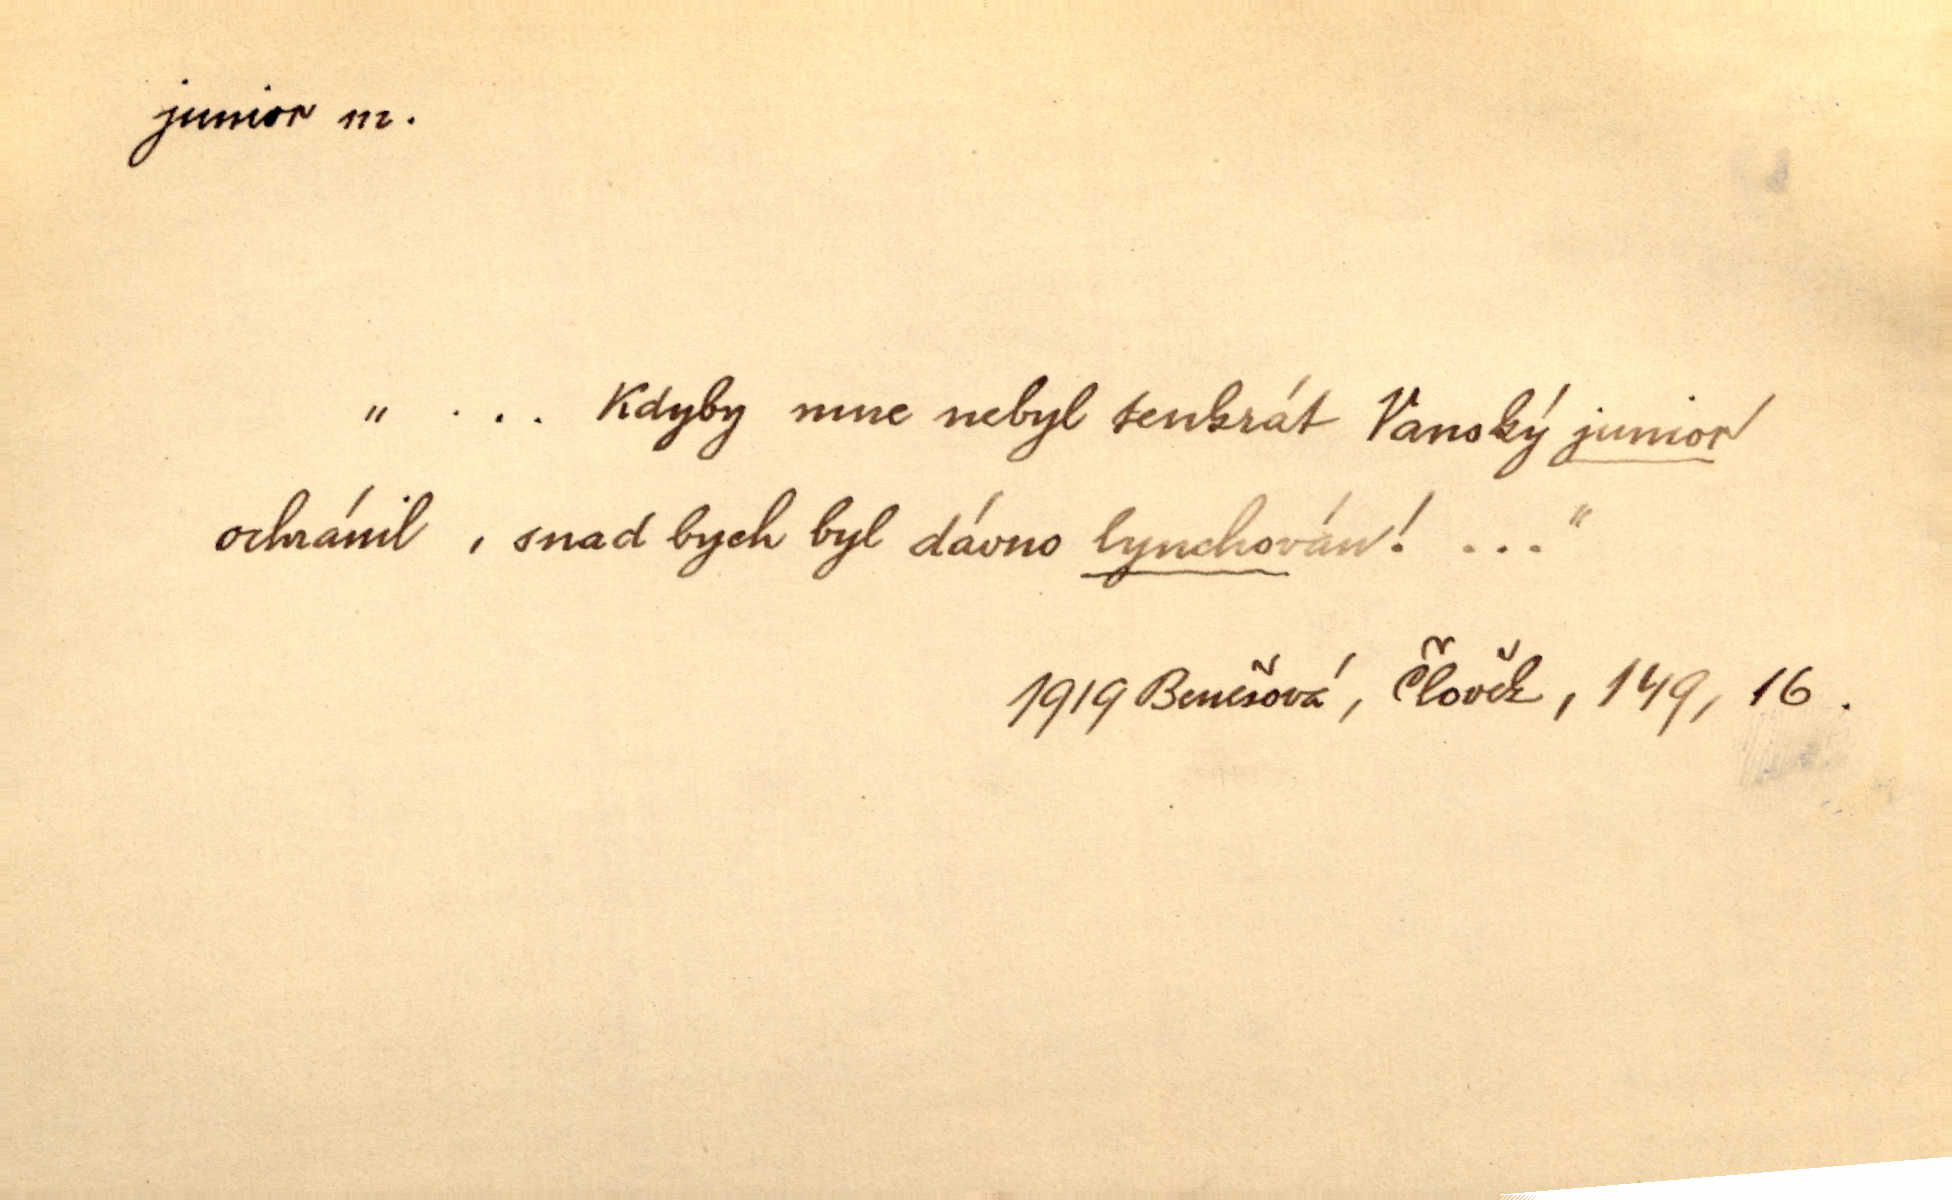 junior m.
„ . . . Kdyby mne nebyl tenkrát Vanský junior
ochránil , snad bych byl dávno lynchován! ...“
1919 Benešová, Člověk, 149, 16.